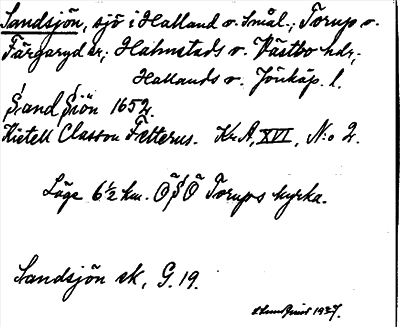 Sandsjön, sjö i Halland o. Smål.; Torup o.
Färgaryd sr; Halmstads o. Västbo hdr;
Hallands o. Jönköp. l.
Sand Siön 1652.
Kietell Classon Fætterus. KrA, XVI, N:o 2.
Läge 6½ km. ÖSÖ Torups kyrka.
Sandsjön ek, G. 19.
1927.